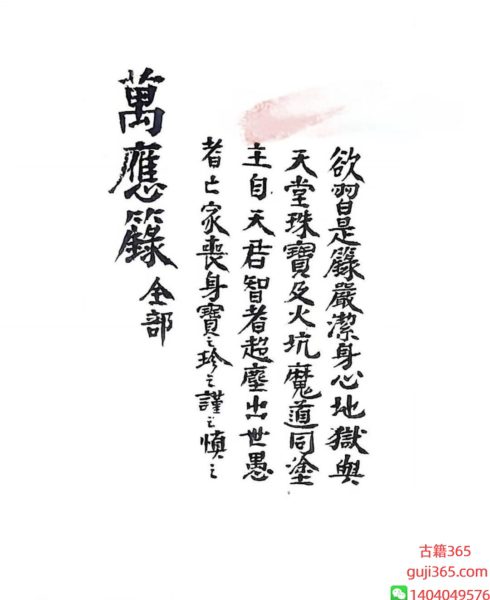 欲習是籙嚴潔身心地獄與
天堂珠寶及火坑魔道同塗
主自天君智者超塵出世愚
者亡家喪身寶之珍之謹之慎之
萬應籙 全部
古籍365
guji365.com
1404049576